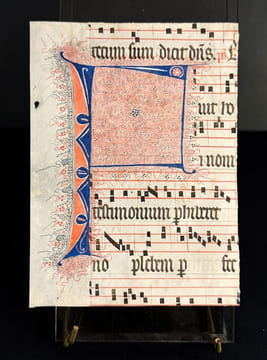 ctum sum dicit dñs.
uit vo
nom
testimonium phiberet
no plebem ꝑ fec